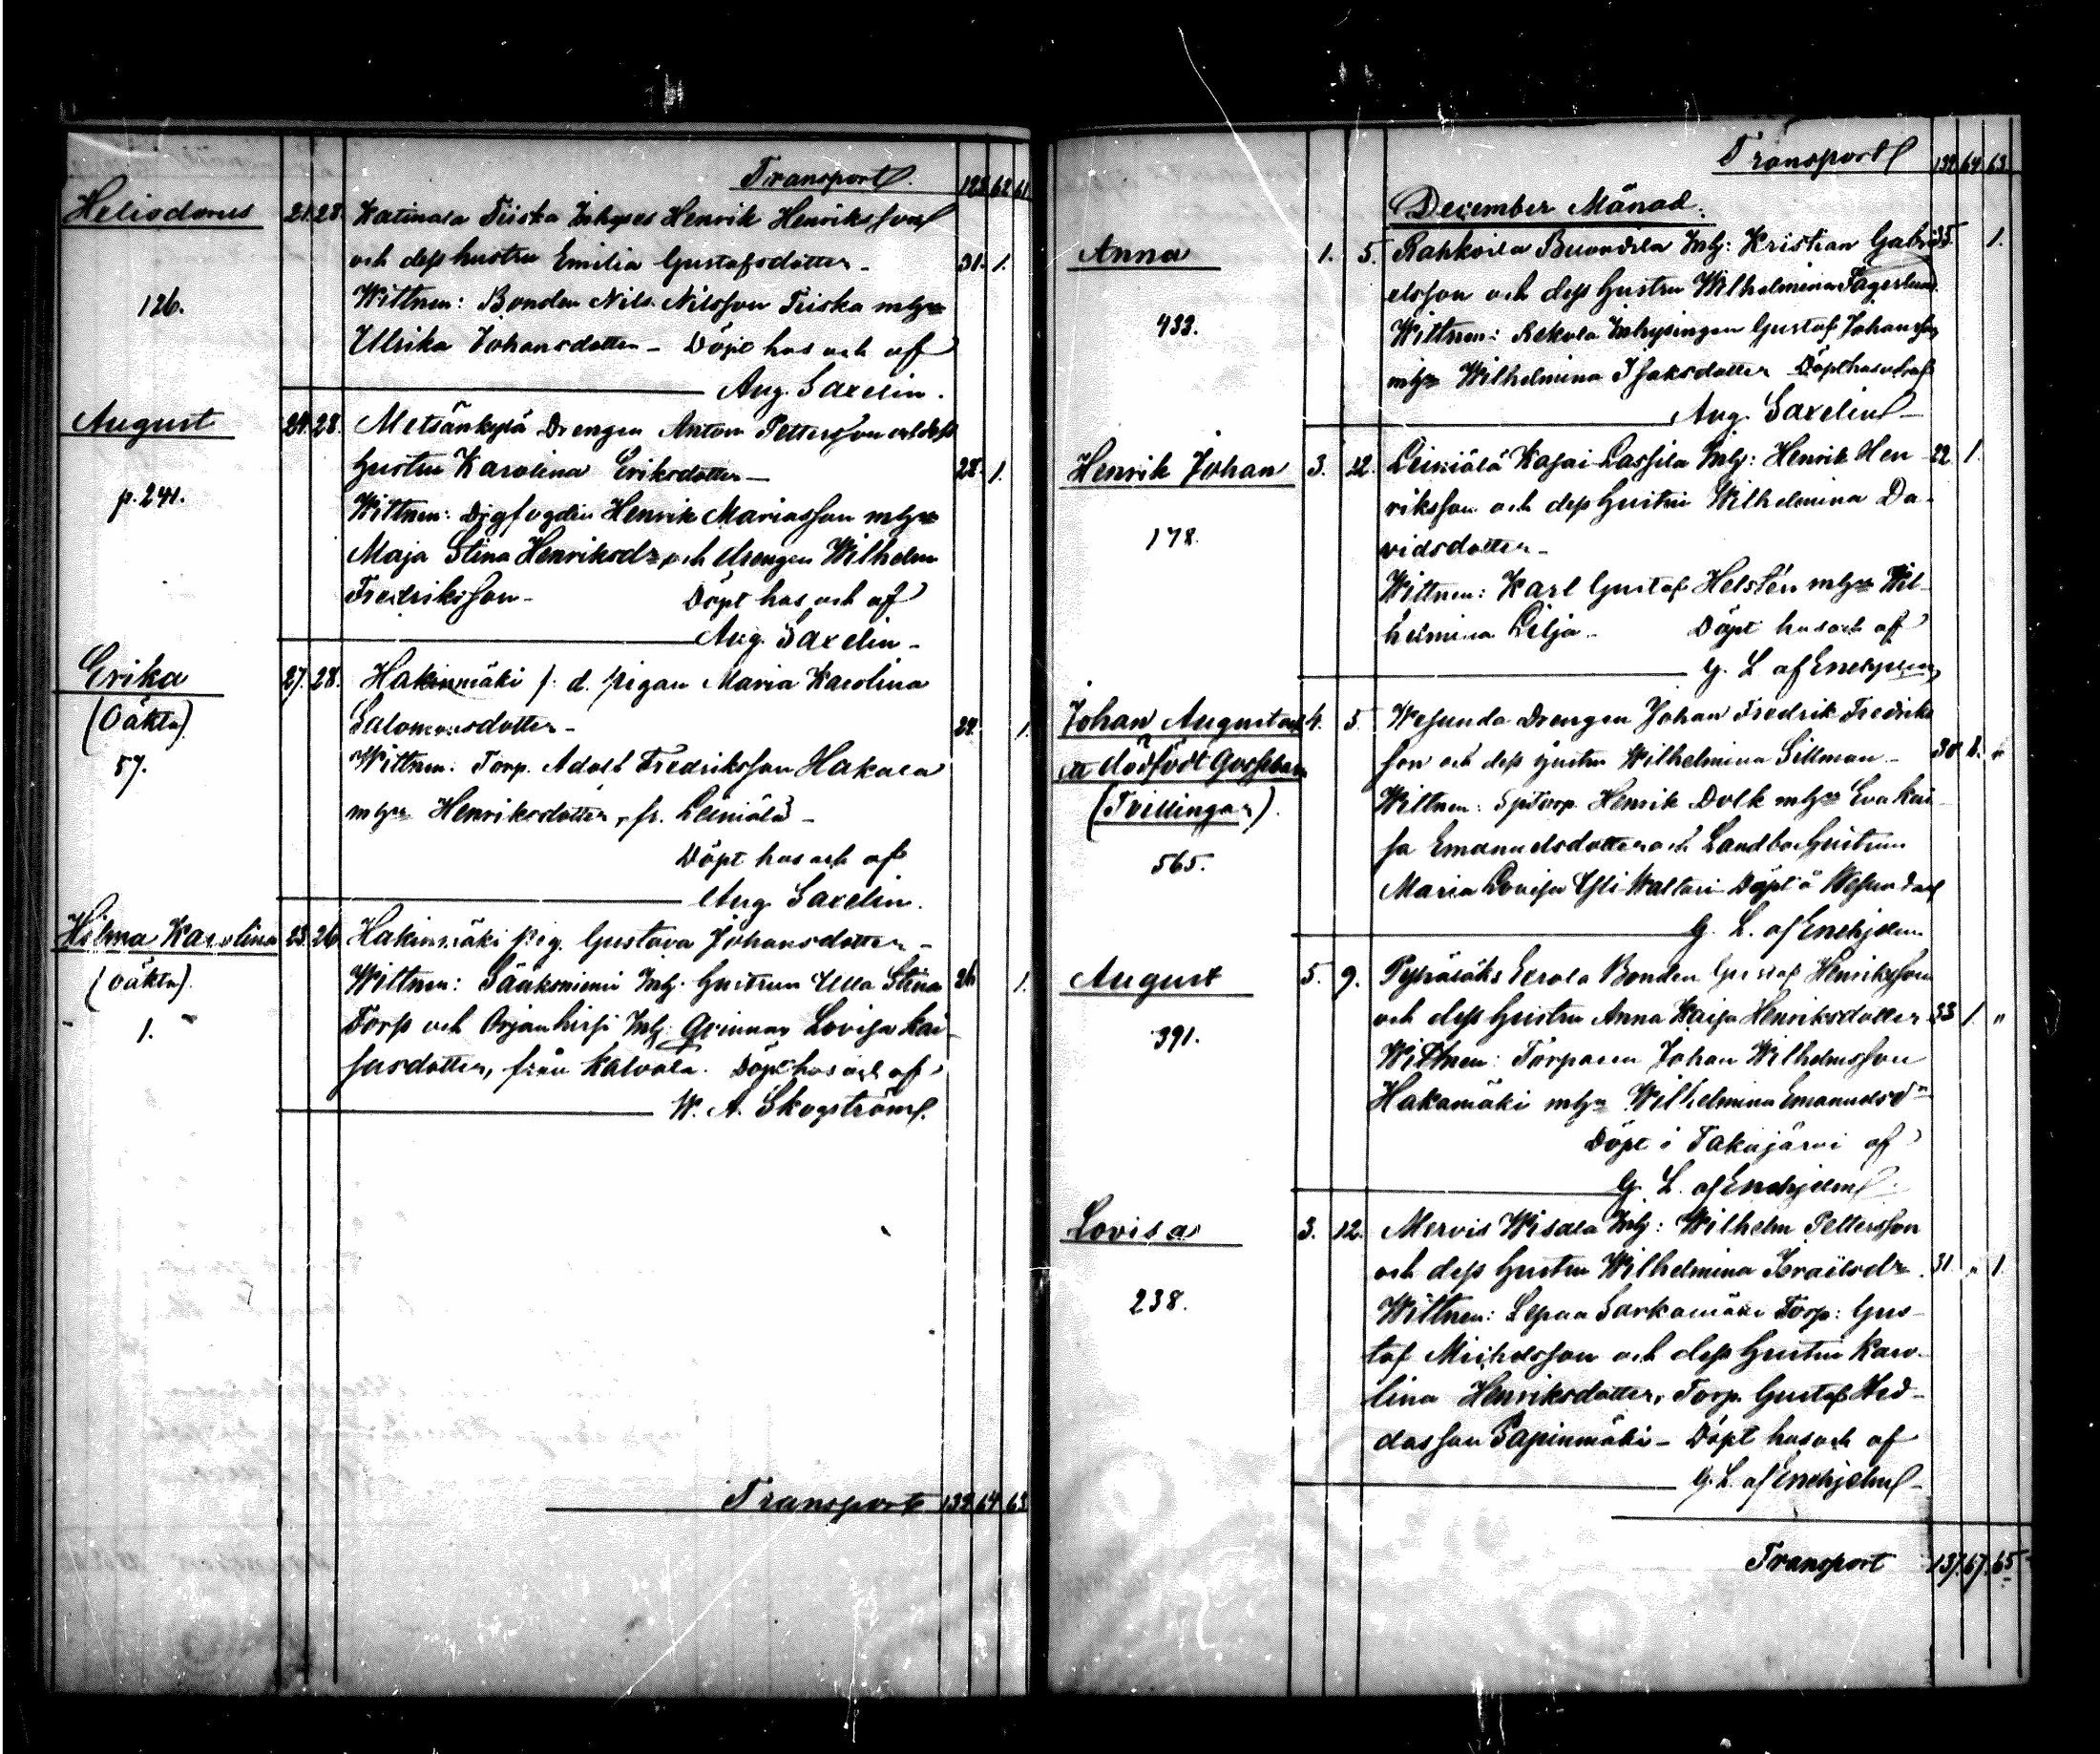 Transport 128 62 61
Heliodorus 21. 28. Katinala Tiiska Inhyses Henrik Henriksson
och dess hustru Emilia Gustafsdotter - 31. 1.
126. Wittnen: Bonden Nils Nilsson Tiiska m hu
Ulrika Johansdotter - Döpt hos och af
Aug. Saxelin.
August 24. 28. Metsänkylä Drengen Anton Pettersson och dess
hustru Karolina Eriksdotter - 28. 1.
p. 241. Wittnen: Henrik Mariasson m hu
Maja Stina Henriksdr och drengen Wilhelm
Fredriksson - Döpt hos och af
Aug. Saxelin -
Erika 27. 28. Hakinmäki f. d. pigan Maria Karolina
(Oäkta) Salomonsdotter - 24. 1.
57. Wittnen: Torp. Adolf Fredriksson Hakala
m hu Henriksdotter, fr. Leiniälä -
Döpt hos och af
Aug. Saxelin.
Hilma Karolina 25. 26. Hakinmäki pig. Gustava Johansdotter -
(Oäkta). Wittnen: Sääksniemi Inh. hustrun Ulla Stina 26 1.
1. Torp och Orjanhirsi Inh. qvinnan Lovisa Kai-
sasdotter, från Kalvola. Döpt hos och af
W. A. Skogström.
Transport 132 64 63
Transport 132 64 63
December Månad.
Anna 1. 5. Rahkoila Inh: Kristian Gabri- 35. 1.
elsson och dess hustru Wilhelmina Fagerlund.
433. Wittnen: Rekola Inhysingen Gustaf Johansson
m hu Wilhelmina Isaksdotter Döpt hos och af
Aug. Saxelin -
Henrik Johan 3. 12. Leiniälä Kasai Lassila Inh: Henrik Hen- 22 1.
riksson och dess hustru Wilhelmina Da-
178. vidsdotter -
Wittnen: Karl Gustaf Helstén m hu Wil-
helmina Lilja - Döpt hos och af
G. L. af Enehjelm
Johan August och 4. 5. Wesunda Drengen Johan Fredrik Fredriks
ett dödfödt Gossebarn son och dess hustru Wilhelmina Sillman - 30. 2. "
(Tvillingar). Wittnen: Henrik Dolk m hu Eva Kai-
sa Emanuelsdotter och Landbo hustrun
565. Maria Lovisa Yli Waltari Döpt å Wesunda af
G. L. af Enehjelm
August 5. 9. Eerola Bonden Gustaf Henriksson
och dess hustru Anna Kaisa Henriksdotter 33 1. "
391. Wittnen: Torparen Johan Wilhelmsson
Hakamäki m hu Wilhelmina Emanuelsdr
Döpt i Takajärvi af
G. L. af Enehjelm
Lovisa 3. 12. Mervis Wisala Inh: Wilhelm Pettersson
och dess hustru Wilhelmina Israelsdr. 31. " 1.
238. Wittnen: Lepaa Sarkamäki Torp: Gus-
taf Michelsson och dess hustru Karo-
lina Henriksdotter, Torp. Gustaf Hed-
dasson Papinmäki - Döpt hos och af
G. L. af Enehjelm -
Transport 137. 67. 65